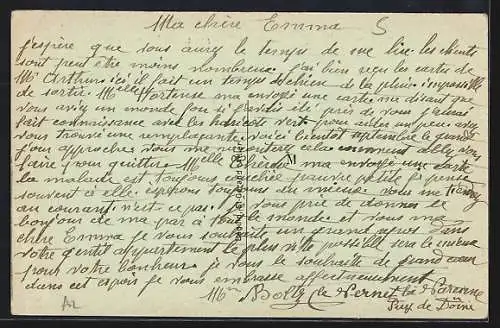 Ma chère Emma S
j'espère que vous aurez le temps de me lire les clients
sont peut être moins nombreux. j'ai bien reçu les cartes de
Mr Arthur ici il fait un temps de chien de la pluie impossible
de sortir. Melle Hortense ma envoyé une carte me disant que
vous aviez un monde fou si j'avais été près de vous j'aurais
fait connaissance avec les haricots vert pour vous un peu avez
vous trouvé une remplaçante voici bientot septembre le grand
jour approche vous me cela comment allez vous
faire pour quitter Melle ma envoyé une carte
la malade est toujours pauvre petite je pense
souvent à elle espérons toujours du mieux vous me tiendrez
au courant n'est ce pas. vous prie de donner le
bonjour de ma par à tout le monde et vous ma
chère Emma je vous souhaite un grand repos dans
votre gentil appartement le plus vite possible sera le mieux
pour votre bonheur je vous le souhaite de grand cœur
dans cet espoir je vous embrasse affectueusement
Mme le Vernet la Varenne
Puy de Dôme